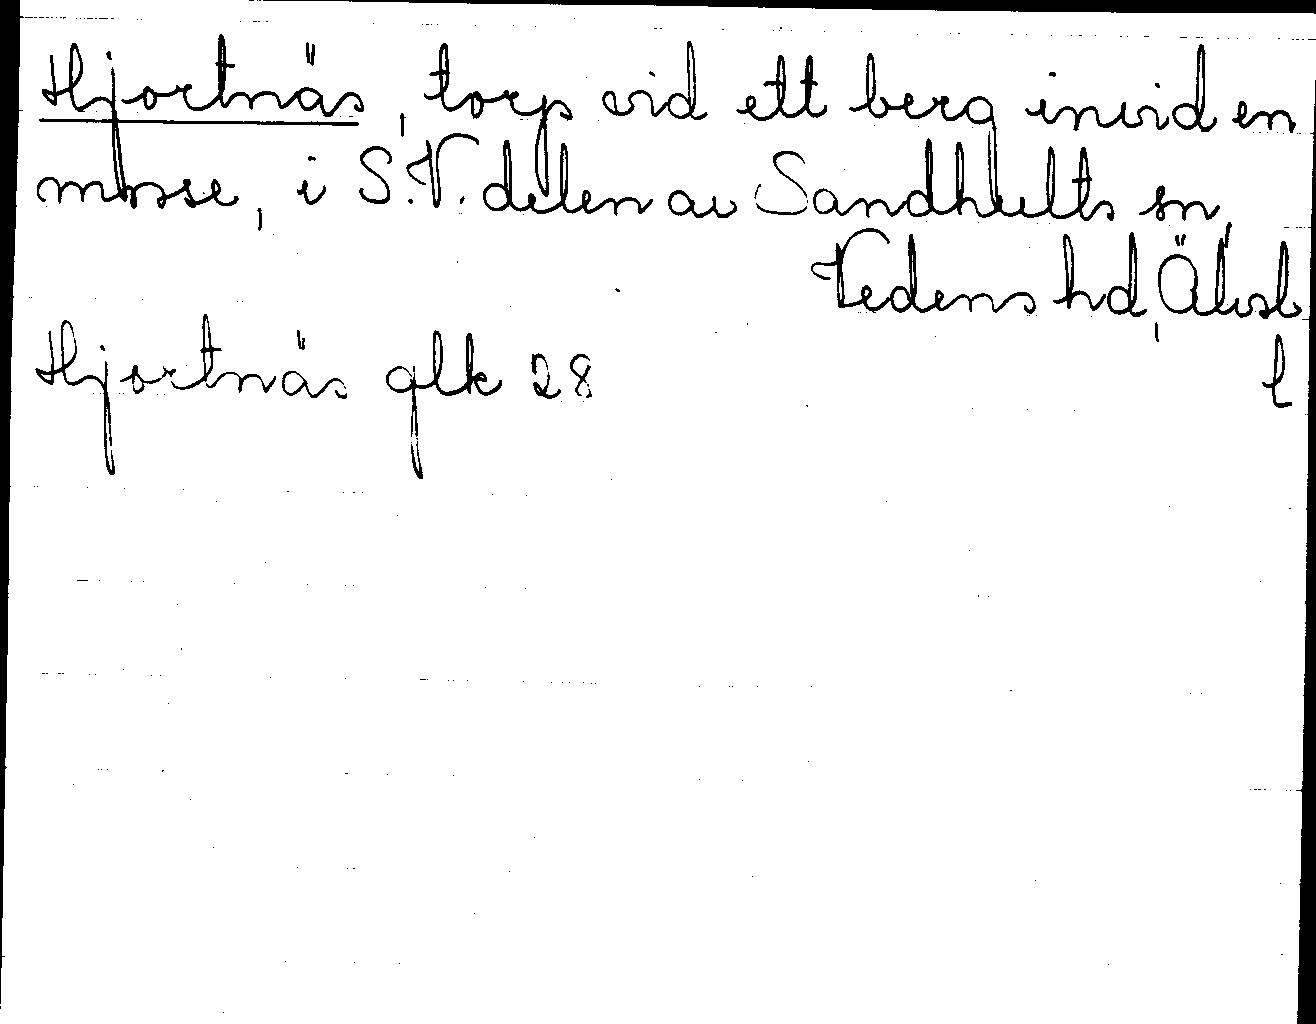 Hjortnäs, torp vid ett berg invid en
mosse, i S.V. delen av Sandhults sn,
Vedens hd, Älvsb
l
Hjortnäs glk 28